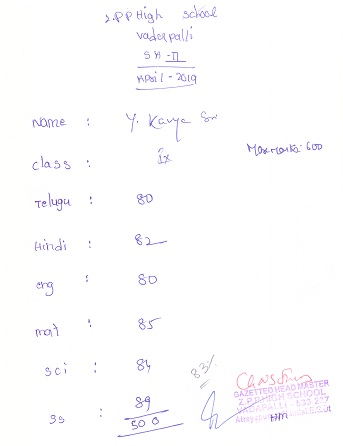 Z.P.P High school
Vaderpalli
SA-II
April-2019
Name : Y. Kavya Sri
class : Ix
Maxmarks: 600
Telugu : 80
Hindi : 82
eng : 80
mat : 85
sci : 84
83%
ss : 89
500
GAZETTED HEAD MASTER
Z.P.P. HIGH SCHOOL
VADAPALLI - 533 237
HM